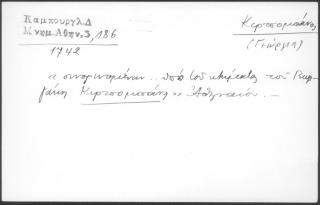 Καμπουργλ.Δ
Μνημ.Αθην.3, 186
1742
Κιρτσομπάκης
(Γεώργης)
" συνορισμένην .. υπό του κτήματος του Γεωρ-
γάκη Κιρτσομπάκη " Αθηναίου. —